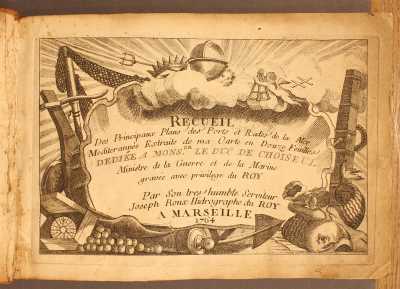 RECUEIL
Des Principaux Plans des Ports et Rades de la Mer
Mediterranée Extraits de ma Carte en Douze Feuilles
DEDIÉE A MONS.R LE DUC DE CHOISEUL
Ministre de la Guerre et de la Marine
gravée avec privilege du ROY
Par Son tres humble Serviteur
Joseph Roux Hidrographe du ROY
A MARSEILLE
1764